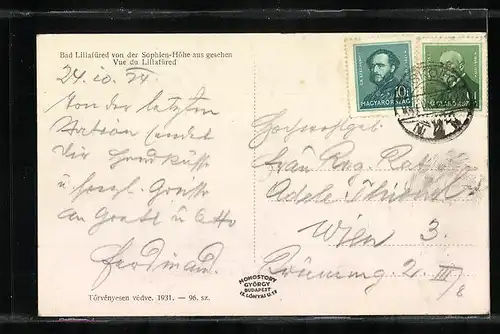 Bad Lillafüred von der Sophien-Höhe aus gesehen
Vue du Lillafüred
24.10.34
Von der letzten
Station sendet
dir Handküsse
u herzl. Grüsse
an Gretl u Otto
Ferdinand.
Törvényesen védve. 1931. — 96. sz.
MONOSTORY
GYÖRGY
BUDAPEST
IX. LÓNYAI U. 17
10
MAGYARORSZÁG
Hochwohlgeb.
Frau Reg. Rat
Adele
Wien 3.
2 III/8